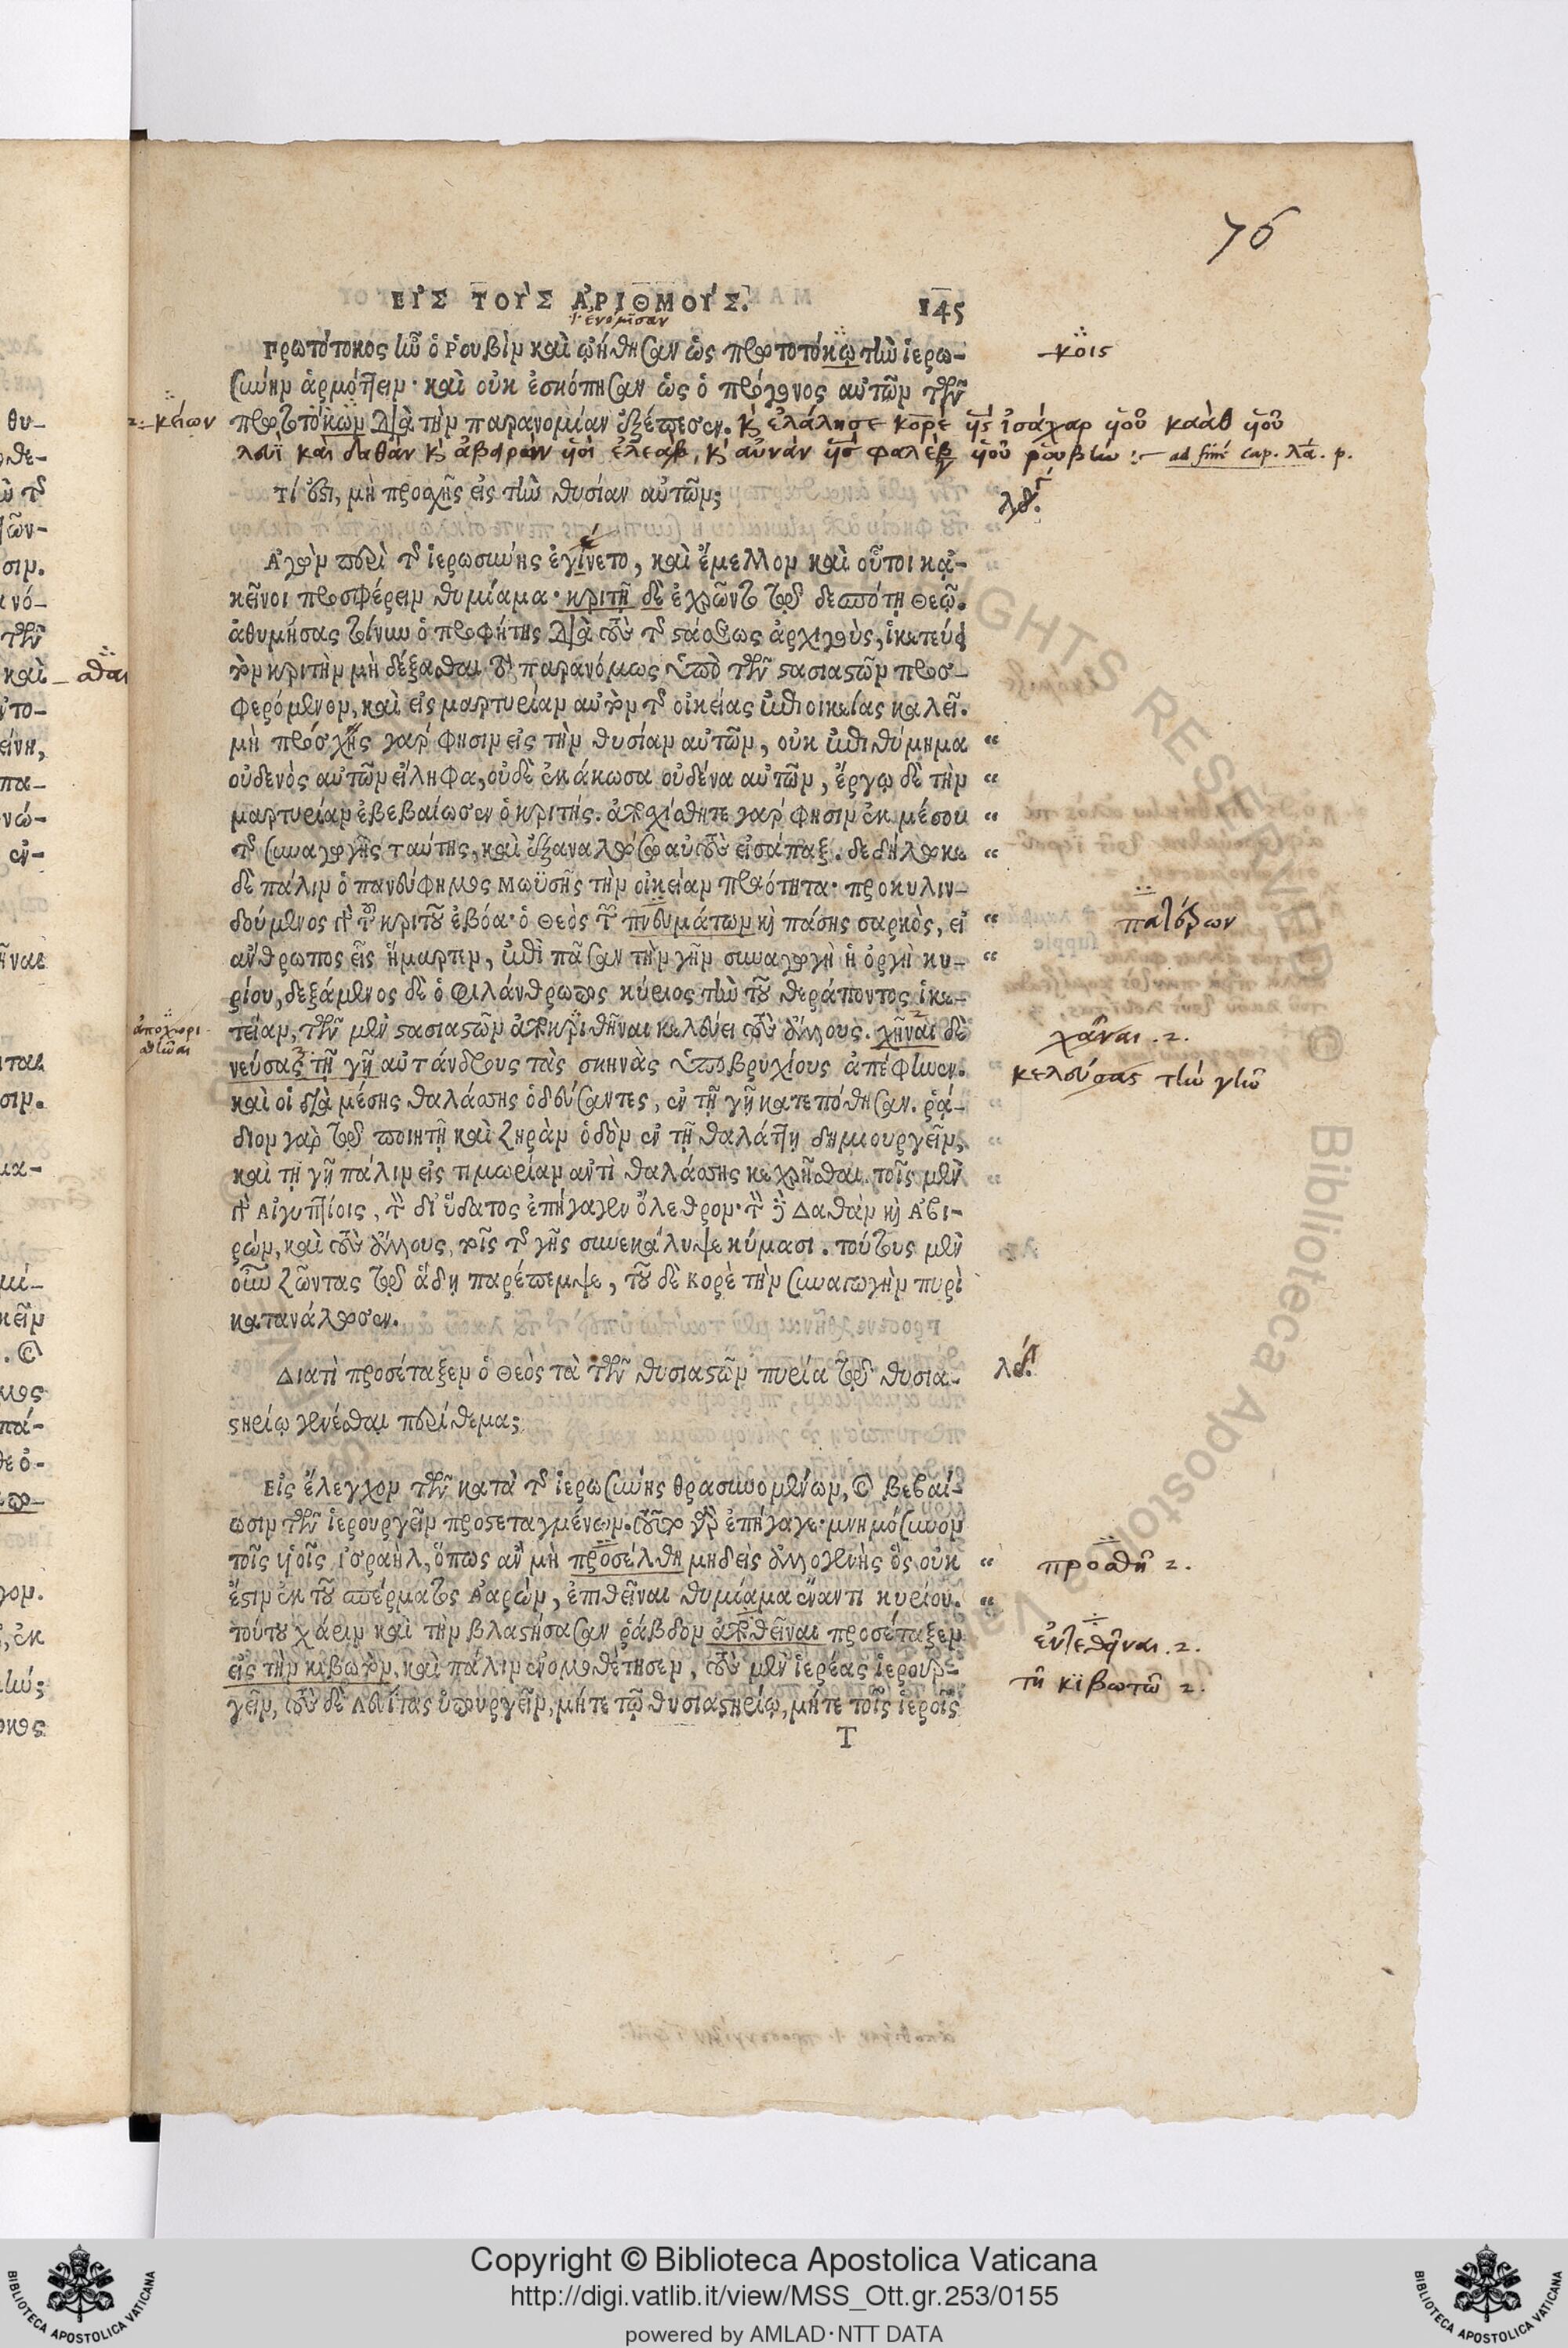 76
ΕἸΣ ΤΟΥ̓Σ ἈΡΙΘΜΟΎΣ.
145
1· ἐνόμισαν
πρωτότοκος ἦν ὁ Ῥουβὶμ καὶ ᾠήθησαν ὡς πρωτοτόκῳ τὴν ἱερω-
—κοις
σύνην ἁρμόττειν· καὶ οὐκ ἐσκόπησαν ὡς ὁ πρόγονος αὐτῶν τῶν
2:—κείων
πρωτοτόκων διὰ τὴν παρανομίαν ἐξέπεσεν.
κỳ ἐλάλησε κορὲ ὑς ἰσάχαρ υοῦ καὰθ υοῦ
λευὶ καὶ δαθὰν κỳ ἀβαρὼν υοὶ ἐλεὰβ, κỳ αὐνὰν ὑς φαλὲβ υοῦ ῥουβὶν :— ad finē cap. λα. p.
Τί ἐστι, μὴ προσχῇς εἰς τὴν θυσίαν αὐτῶν;
Ἀγὼν περὶ τῆς ἱερωσύνης ἐγίνετο, καὶ ἔμελλον καὶ οὗτοι κἀ-
κεῖνοι προσφέρειν θυμίαμα· κριτῇ δὲ ἐχρῶντο τῷ δεσπότῃ Θεῷ.
ἀθυμήσας τοίνυν ὁ προφήτης διὰ τοὺς τῆς στάσεως ἀρχηγοὺς, ἱκετεύει
τὸν κριτὴν μὴ δέξασθαι τὸ παρανόμως ὑπὸ τῶν στασιαστῶν προσ-
φερόμενον, καὶ εἰς μαρτυρίαν αὐτὸν τῆς οἰκείας ἐπιεικείας καλεῖ.
μὴ πρόσχῃς γάρ φησιν εἰς τὴν θυσίαν αὐτῶν, οὐκ ἐπιθύμημα “
οὐδενὸς αὐτῶν εἴληφα, οὐδὲ ἐκάκωσα οὐδένα αὐτῶν, ἔργῳ δὲ τὴν “
μαρτυρίαν ἐβεβαίωσεν ὁ κριτής. ἀποσχίσθητε γάρ φησιν ἐκ μέσου “
τῆς συναγωγῆς ταύτης, καὶ ἐξαναλώσω αὐτοὺς εἰσάπαξ. δεδήλωκε “
δὲ πάλιν ὁ πανεύφημος Μωϋσῆς τὴν οἰκείαν πραότητα· προκυλιν-
δούμενος γὰρ τοῦ κριτοῦ ἐβόα· ὁ Θεὸς τῶν πνευμάτων κỳ πάσης σαρκὸς, εἰ “
ἄνθρωπος εἷς ἥμαρτεν, ἐπὶ πᾶσαν τὴν γῆν συναγωγὴ ἡ ὀργὴ κυ- “
ρίου, δεξάμενος δὲ ὁ φιλάνθρωπος κύριος τὴν τοῦ θεράποντος ἱκε-
ἀποχωρι
σθῆναι
τείαν, τῶν μὲν στασιαστῶν ἀποκριθῆναι κελεύει τοὺς ἄλλους. χῆναι δὲ
χᾶναι . 2.
νεύσας τῇ γῇ αὐτάνδρους τὰς σκηνὰς ὑποβρυχίους ἀπέφηνεν.
κελεύσας τὴν γῆν
καὶ οἱ διὰ μέσης θαλάσσης ὁδεύσαντες, ἐν τῇ γῇ κατεπόθησαν. ῥᾴ-
διον γὰρ τῷ ποιητῇ καὶ ξηρὰν ὁδὸν ἐν τῇ θαλάττῃ δημιουργεῖν,
καὶ τῇ γῇ πάλιν εἰς τιμωρίαν ἀντὶ θαλάσσης κεχρῆσθαι. τοῖς μὲν
γὰρ Αἰγυπτίοις, τὸν δι’ ὕδατος ἐπήγαγεν ὄλεθρον· τὸν δὲ Δαθὰν κỳ Ἀβι-
ρὼν, καὶ τοὺς ἄλλους, τοῖς τῆς γῆς συνεκάλυψε κύμασι. τούτους μὲν
οὖν ζῶντας τῷ ᾅδῃ παρέπεμψε, τοῦ δὲ Κορὲ τὴν συναγωγὴν πυρὶ
κατανάλωσεν.
Διατὶ προσέταξεν ὁ Θεὸς τὰ τῶν θυσιαστῶν πυρία τῷ θυσια-
στηρίῳ γενέσθαι περίθεμα;
Εἰς ἔλεγχον τῶν κατὰ τῆς ἱερωσύνης θρασυνομένων, καὶ βεβαί-
ωσιν τῶν ἱερουργεῖν προστεταγμένων. τοῦτο γὰρ ἐπήγαγε· μνημόσυνον
τοῖς υἱοῖς ἰσραὴλ, ὅπως ἂν μὴ προσέλθῃ μηδεὶς ἀλλογενὴς ὃς οὐκ “
προσθῇ 2.
ἔστιν ἐκ τοῦ σπέρματος Ἀαρὼν, ἐπιθεῖναι θυμίαμα ἔναντι κυρίου. “
τούτου χάριν καὶ τὴν βλαστήσασαν ῥάβδον ἀποθεῖναι προσέταξεν
ἐντεθῆναι . 2.
εἰς τὴν κιβωτὸν, καὶ πάλιν ἐνομοθέτησεν, τοὺς μὲν ἱερέας ἱερουρ-
τῇ κιβωτῶ 2.
γεῖν, τοὺς δὲ Λευίτας ὑπουργεῖν, μήτε τῷ θυσιαστηρίῳ, μήτε τοῖς ἱεροῖς
T
Copyright © Biblioteca Apostolica Vaticana
http://digi.vatlib.it/view/MSS_Ott.gr.253/0155
powered by AMLAD·NTT DATA